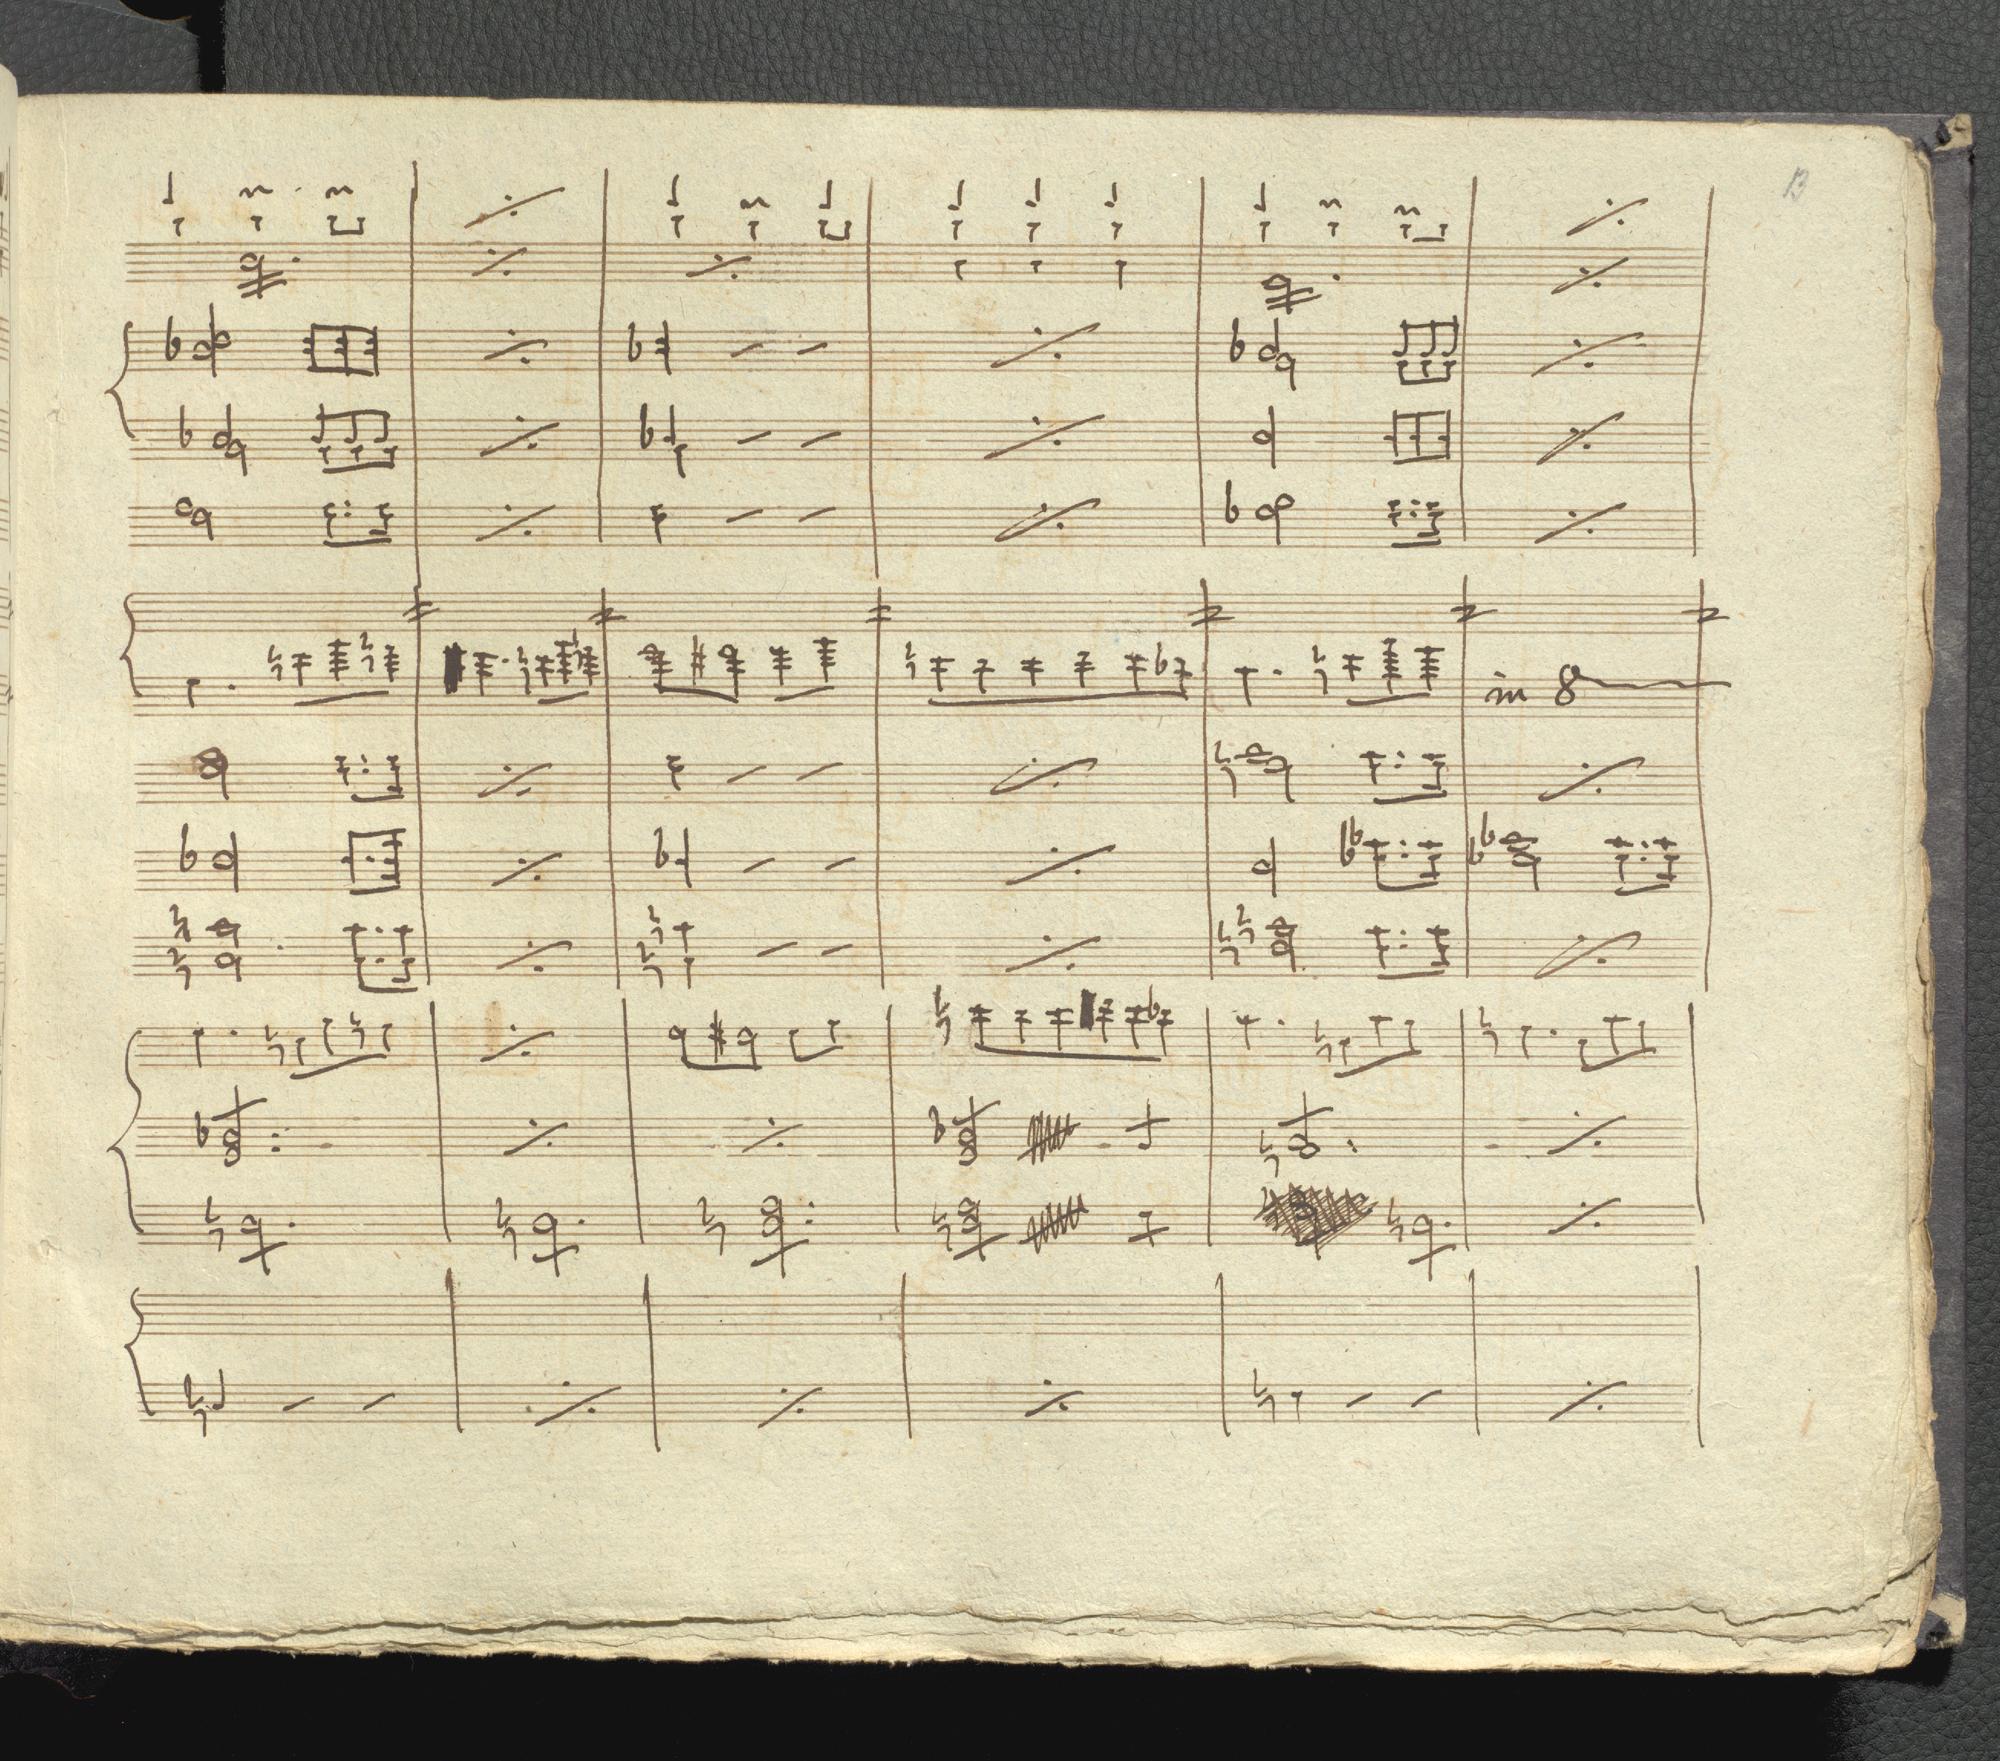 13
in 8